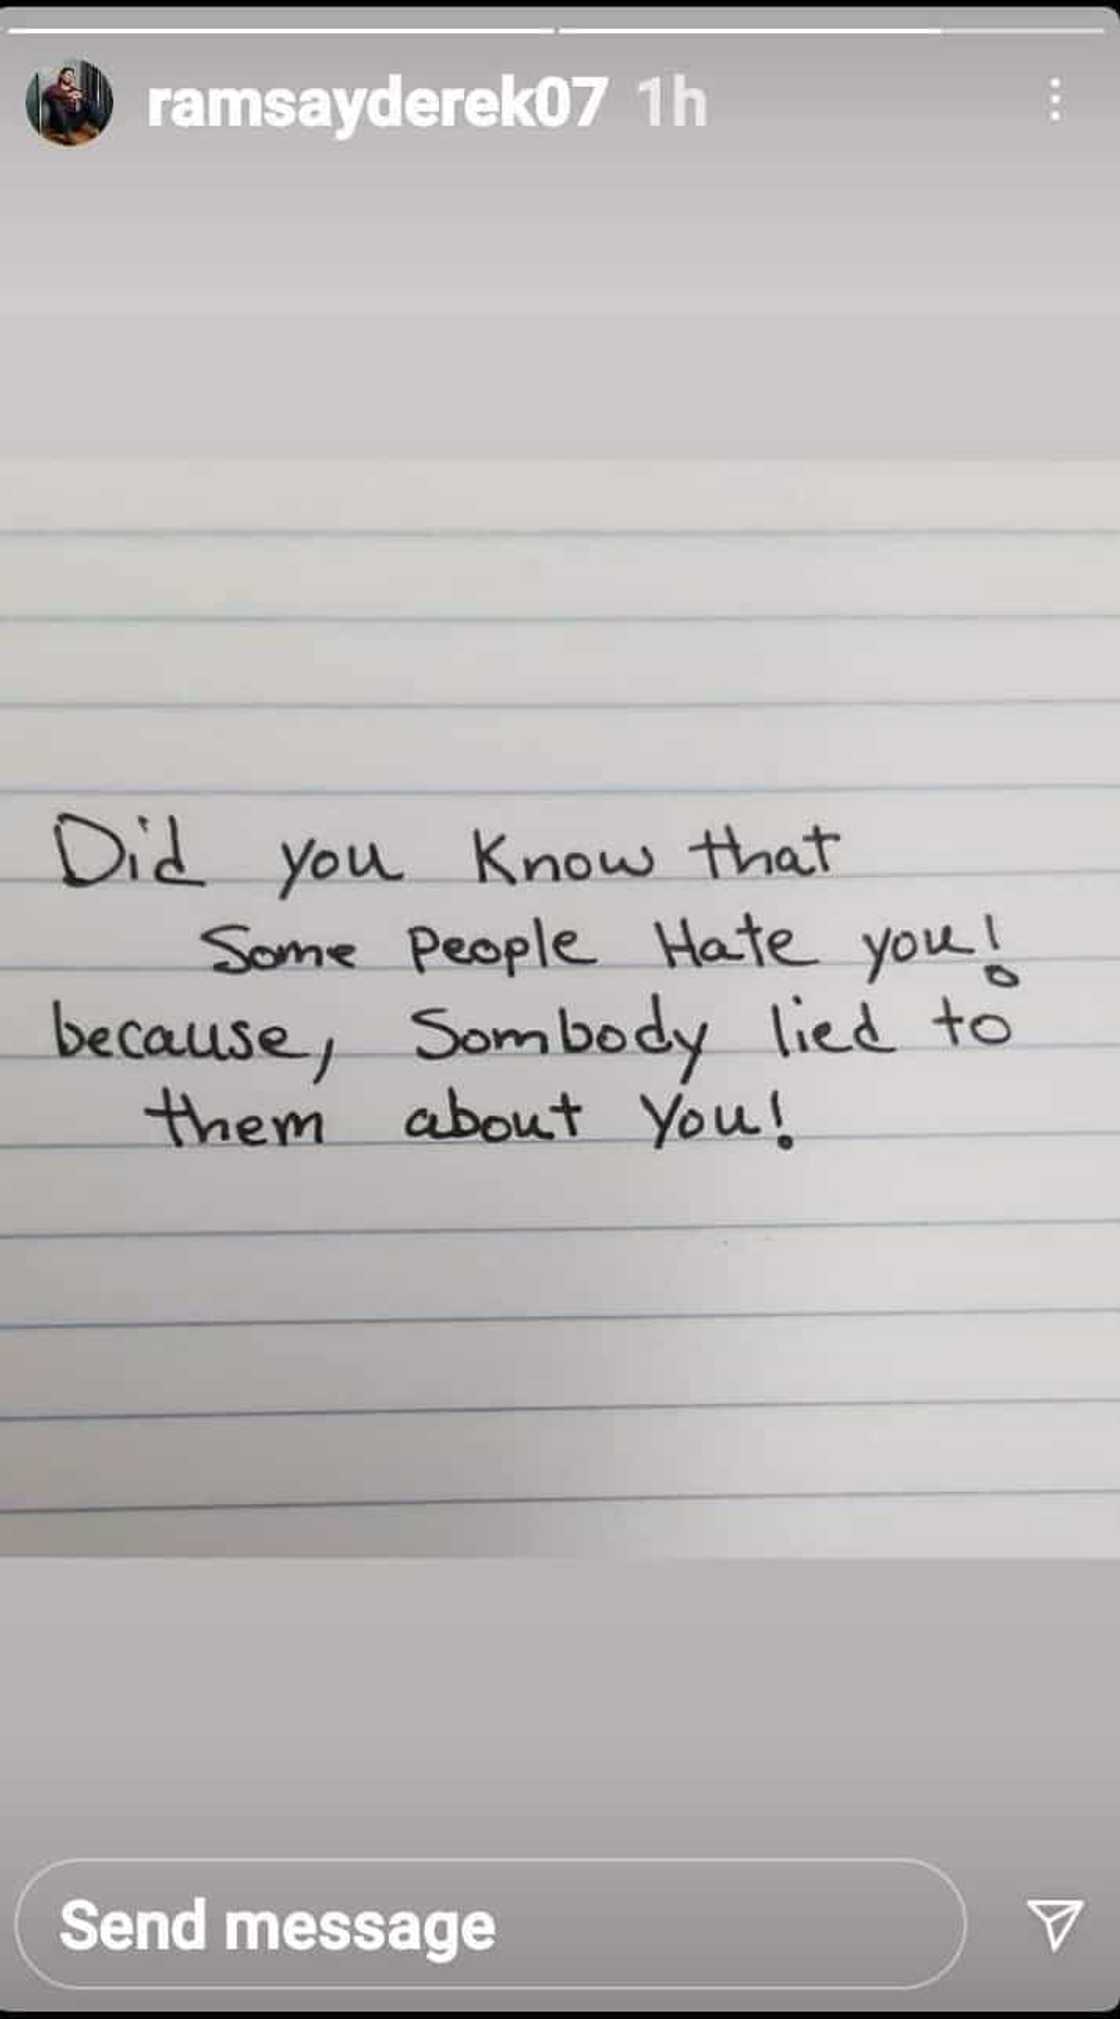 ramsayderek07 1h
Did you know that
Some People Hate you!
because, Sombody lied to
them about You!
Send message